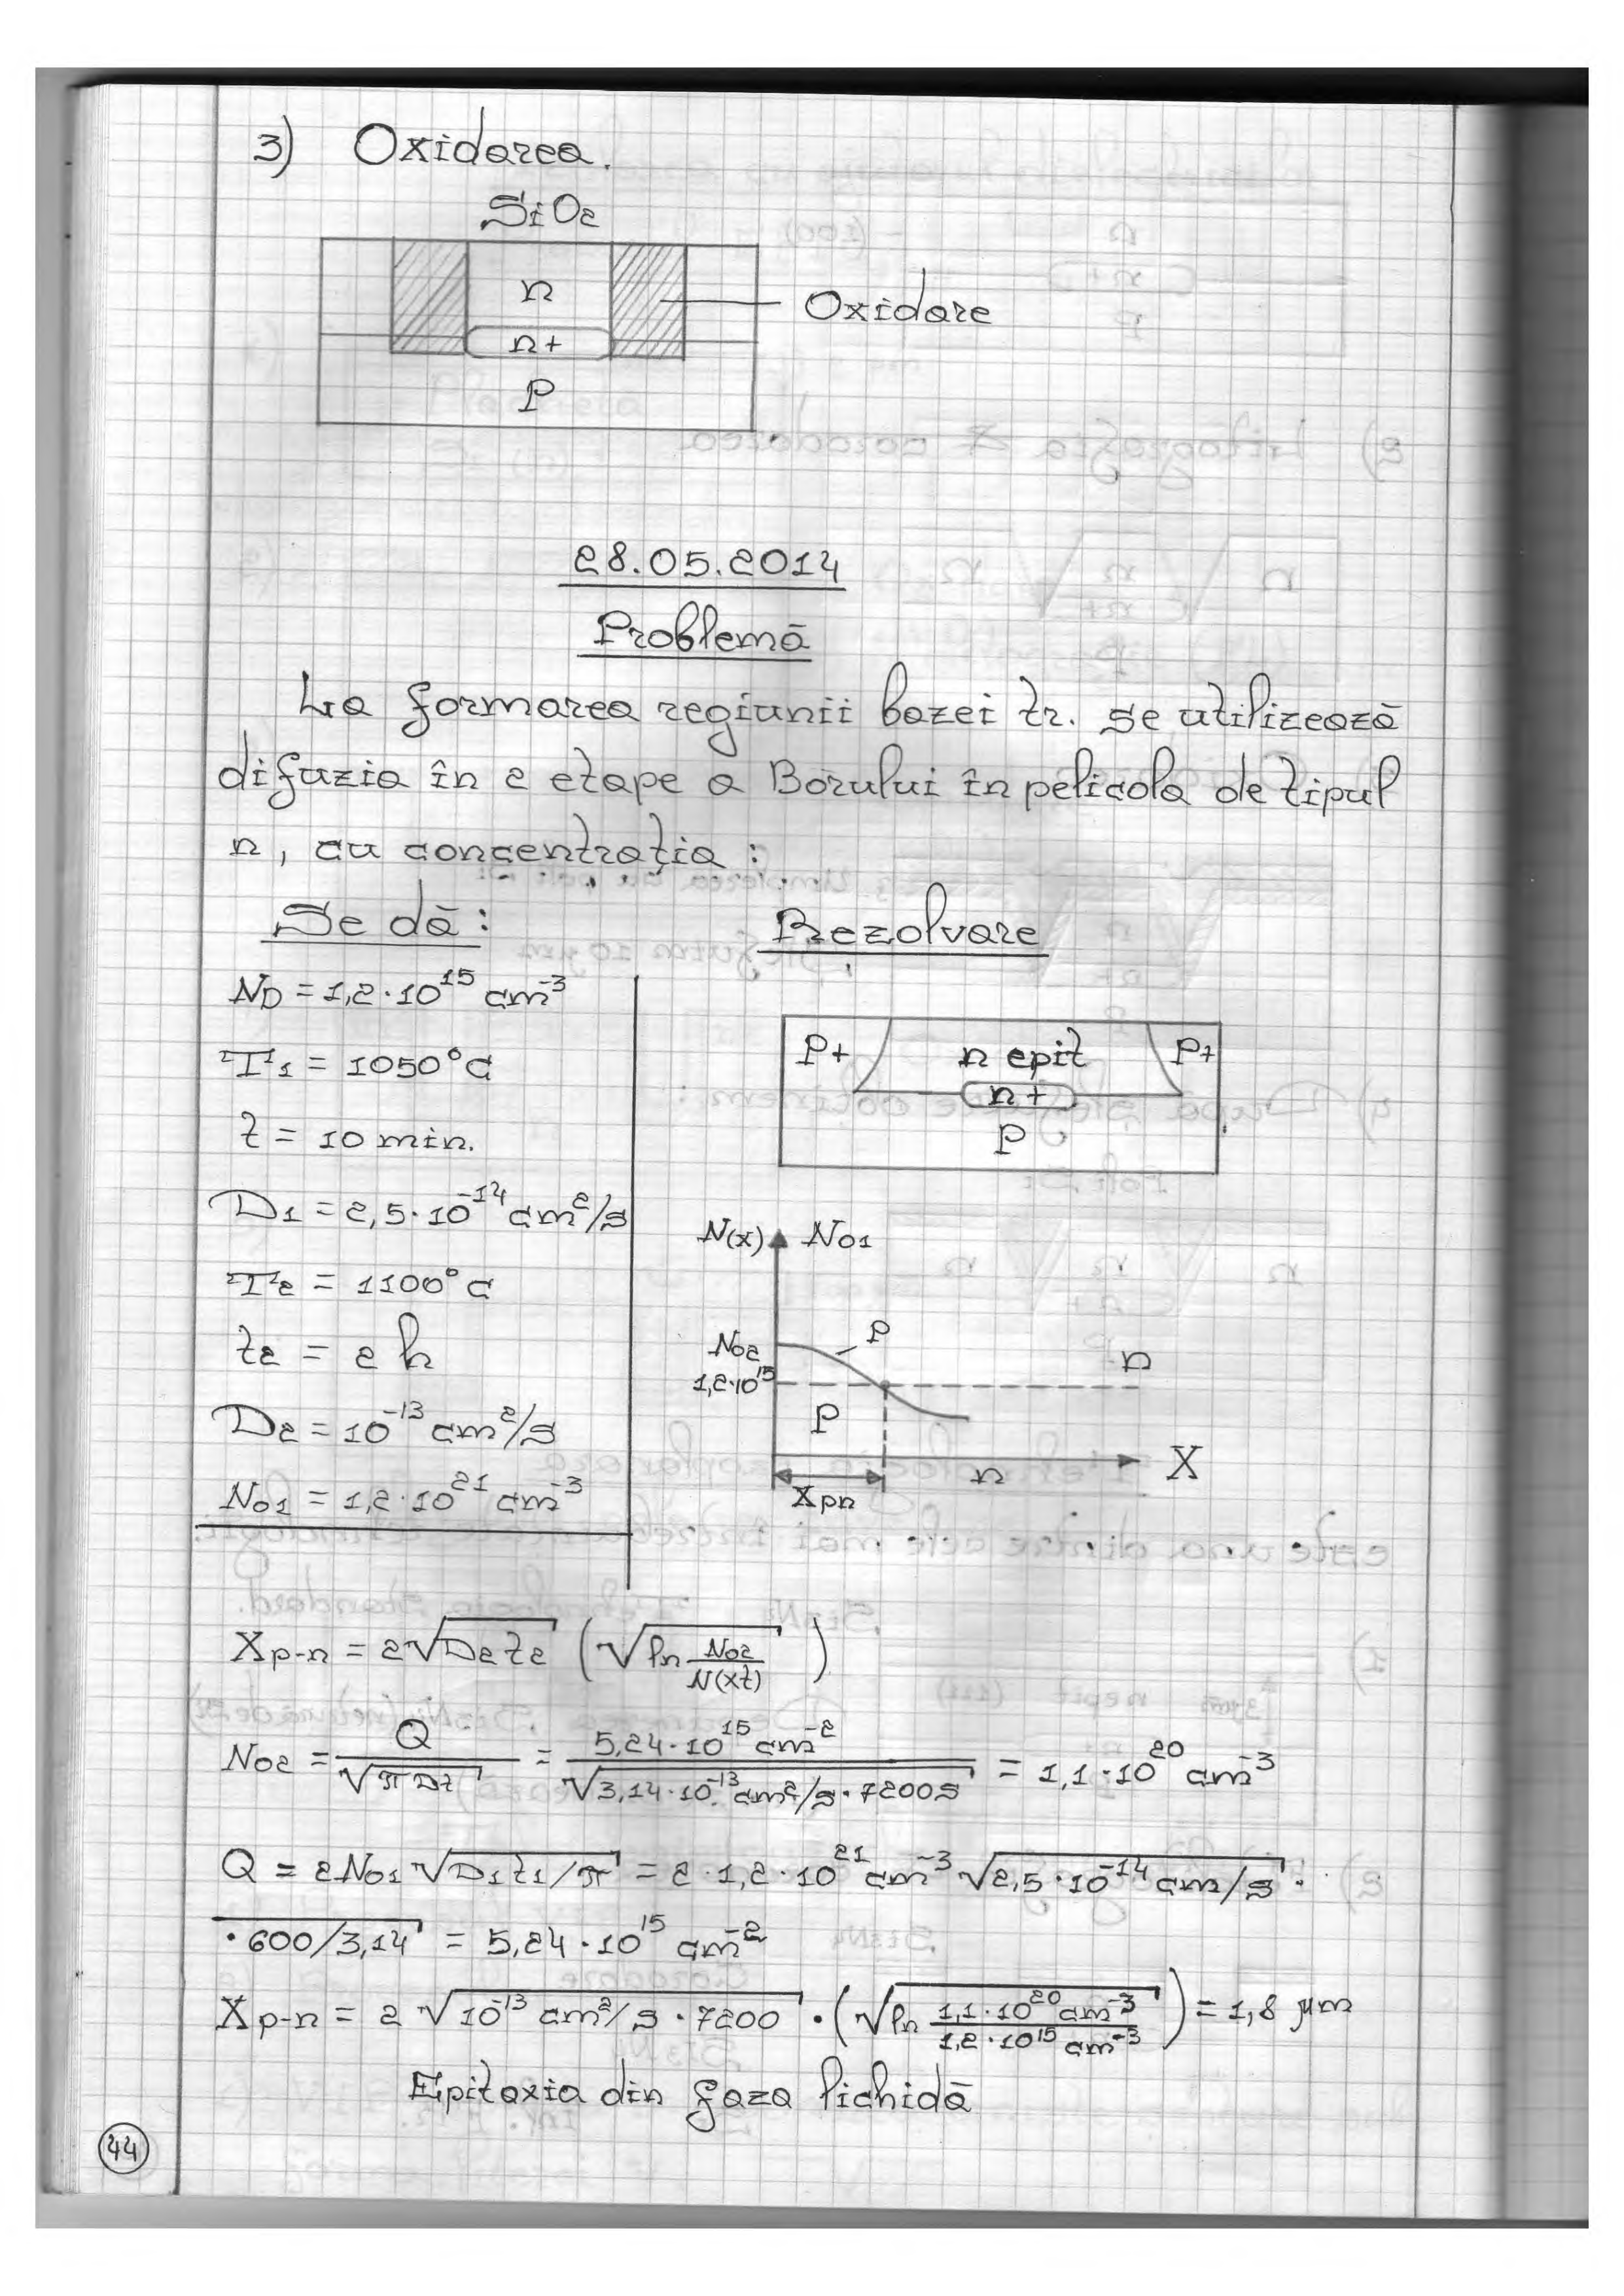 3) Oxidarea.
SiO2
n
n+
P
Oxidare
28.05.2014
Problemă
La formarea regiunii bazei tr. se utilizează
difuzia în 2 etape a Borului în pelicola de tipul
n, cu concentrația :
Se dă:
ND = 1,2·10^15 cm^-3
T1 = 1050°C
t = 10 min.
D1 = 2,5·10^-14 cm^2/s
T2 = 1100°C
t2 = 2 h
D2 = 10^-13 cm^2/s
N01 = 1,2·10^21 cm^-3
Rezolvare
P+ n epit P+
n+
P
N(x) N01
N02 P
1,2·10^15 n
P
n X
Xpn
Xp-n = 2√D2t2 (√ln N02/N(xt))
N02 = Q/√πDt = 5,24·10^15 cm^-2/√3,14·10^-13 cm^2/s·7200s = 1,1·10^20 cm^-3
Q = 2N01 √D1t1/π = 2·1,2·10^21 cm^-3 √2,5·10^-14 cm/s ·
·600/3,14 = 5,24·10^15 cm^-2
Xp-n = 2 √10^-13 cm^2/s·7200 · (√ln 1,1·10^20 cm^-3/1,2·10^15 cm^-3) = 1,8 µm
Epitaxia din faza lichidă
44